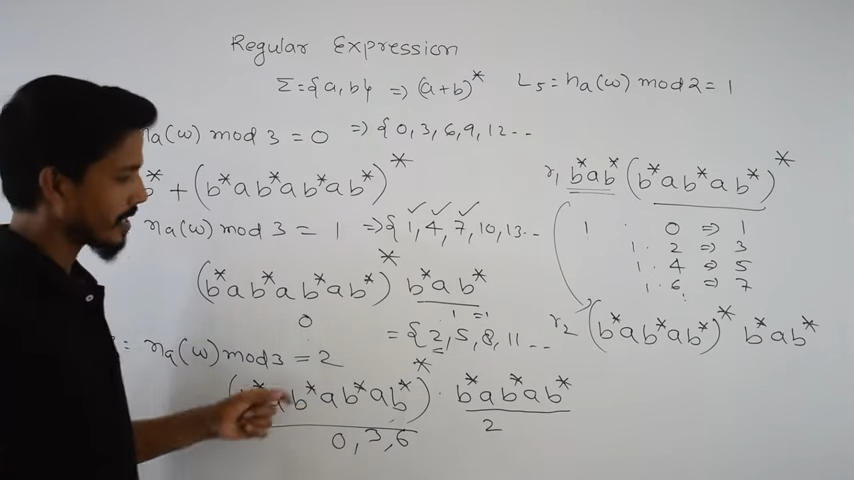 Regular Expression
Σ={a,b} => (a+b)*   L5 = na(w) mod 2 = 1
na(w) mod 3 = 0 => { 0, 3, 6, 9, 12 - -
b* + (b*ab*ab*ab*)*
na(w) mod 3 = 1 => { 1, 4, 7, 10, 13 - -
(b*ab*ab*ab*)* b*ab*
1 = 1
0
= na(w) mod 3 = 2 = { 2, 5, 8, 11 - -
(b*ab*ab*ab*)* . b*ab*ab*
0, 3, 6
2
r1 b*ab* (b*ab*ab*)*
1 . 0 => 1
1 . 2 => 3
1 . 4 => 5
1 . 6 => 7
r2 (b*ab*ab*)* b*ab*